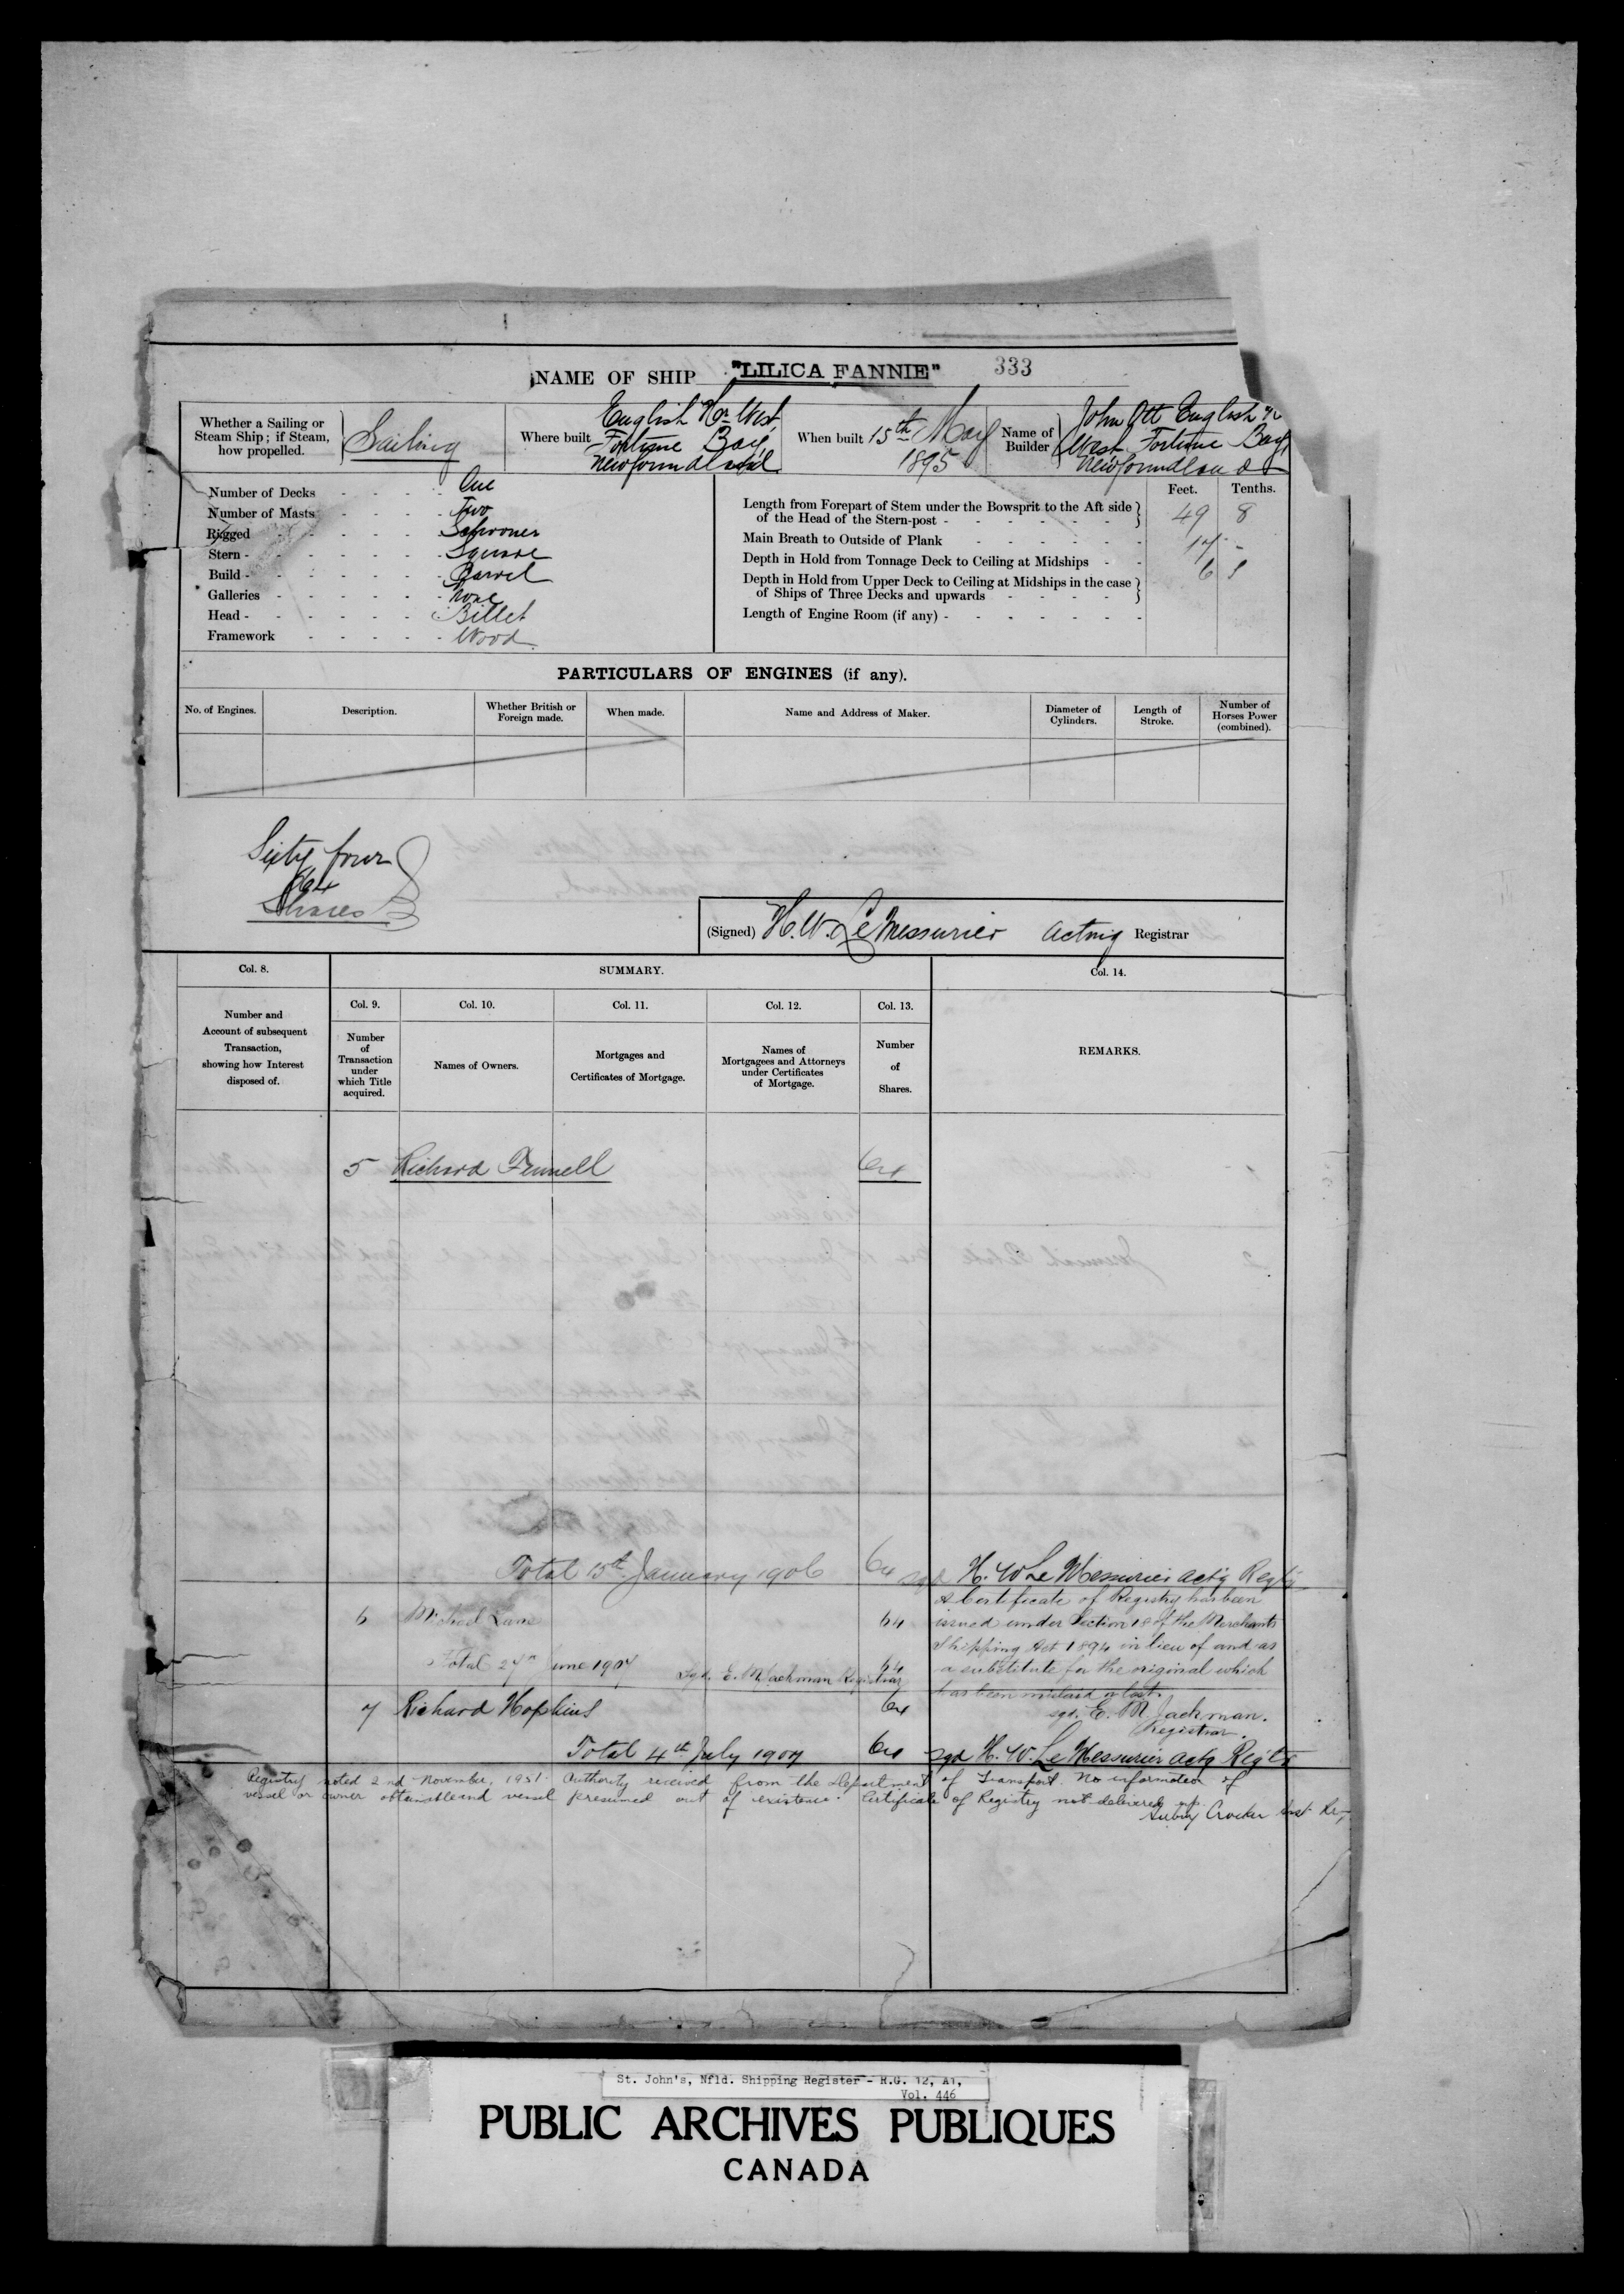 NAME OF SHIP "LILICA FANNIE" 333
Whether a Sailing or
Steam Ship; if Steam,
how propelled.
Sailing
Where built
English Hr West
Fortune Bay,
Newfoundland
When built 15th May
1895
Name of
Builder
John Ott English Hr
West Fortune Bay
Newfoundland
Number of Decks - - - - One
Number of Masts - - - - Two
Rigged - - - - - Schooner
Stern - - - - - - Square
Build - - - - - - Carvel
Galleries - - - - - None
Head - - - - - - Billet
Framework - - - - - Wood
Feet. Tenths.
Length from Forepart of Stem under the Bowsprit to the Aft side
of the Head of the Stern-post - - - - - - 49 8
Main Breath to Outside of Plank - - - - - 17 -
Depth in Hold from Tonnage Deck to Ceiling at Midships - - 6 9
Depth in Hold from Upper Deck to Ceiling at Midships in the case
of Ships of Three Decks and upwards - - - -
Length of Engine Room (if any) - - - - - - -
PARTICULARS OF ENGINES (if any).
No. of Engines.
Description.
Whether British or
Foreign made.
When made.
Name and Address of Maker.
Diameter of
Cylinders.
Length of
Stroke.
Number of
Horses Power
(combined).
Sixty four
64
Shares
(Signed) H. W. LeMessurier Acting Registrar
Col. 8.
SUMMARY.
Col. 14.
Number and
Account of subsequent
Transaction,
showing how Interest
disposed of.
Col. 9.
Number
of
Transaction
under
which Title
acquired.
Col. 10.
Names of Owners.
Col. 11.
Mortgages and
Certificates of Mortgage.
Col. 12.
Names of
Mortgagees and Attorneys
under Certificates
of Mortgage.
Col. 13.
Number
of
Shares.
REMARKS.
5 Richard Fennell 64
Total 15th January 1906 64 sgd H. W LeMessurier actg Regtr
6 Michael Lane 64
Total 27th June 1907 64
Sgd. E. M Jackman Registrar
A Certificate of Registry has been
issued under Section 18 of the Merchants
Shipping Act 1894 in lieu of and as
a substitute for the original which
has been mislaid or lost.
sgd. E. M. Jackman.
Registrar.
7 Richard Hopkins 64
Total 4th July 1907 64 sgd H. W. LeMessurier actg Regtr
Registry noted 2nd November, 1951. Authority received from the Department of Transport. No information of
vessel or owner obtainable and vessel presumed out of existence. Certificate of Registry not delivered up.
Aubrey Crocker
St. John's, Nfld. Shipping Register - R.G. 12, A1,
Vol. 446
PUBLIC ARCHIVES PUBLIQUES
CANADA